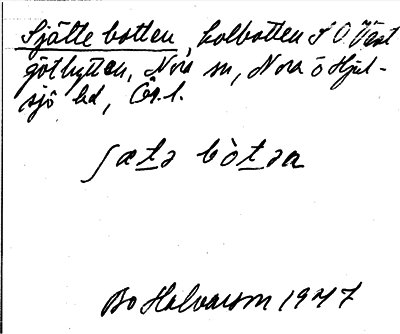 Själtebotten, kolbotten i O. Väst
götlyttan, Nora sn, Nora o Hjul-
sjö bd, Ör. l.
ʃætə bòtən
Bo Halvarson 1947